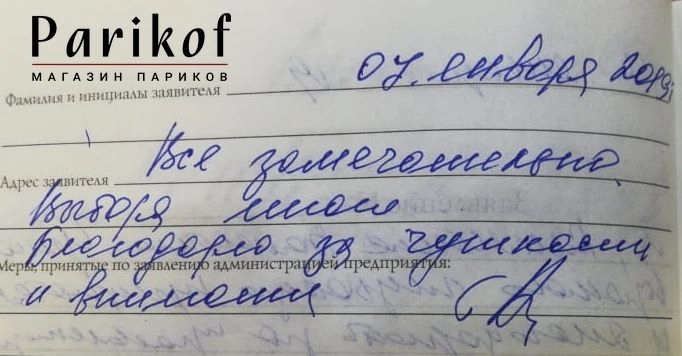 Parikof
МАГАЗИН ПАРИКОВ
07. января 2019г
Фамилия и инициалы заявителя
Все замечательно.
Адрес заявителя
Выбора много
Благодарю за чуткость
Меры, принятые по заявлению администрацией предприятия:
и внимание